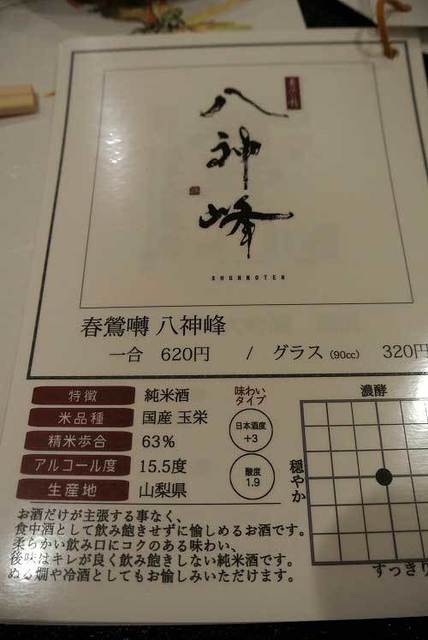 八
神
峰
SHUNNOTEN
春鶯囀 八神峰
一合 620円 / グラス (90cc) 320円
特徴 純米酒
米品種 国産 玉栄
精米歩合 63%
アルコール度 15.5度
生産地 山梨県
味わい
タイプ
日本酒度
+3
酸度
1.9
濃酵
穏やか
すっきり
お酒だけが主張する事なく、
食中酒として飲み飽きせずに愉しめるお酒です。
柔らかい飲み口にコクのある味わい、
後味はキレが良く飲み飽きしない純米酒です。
ぬる燗や冷酒としてもお愉しみいただけます。